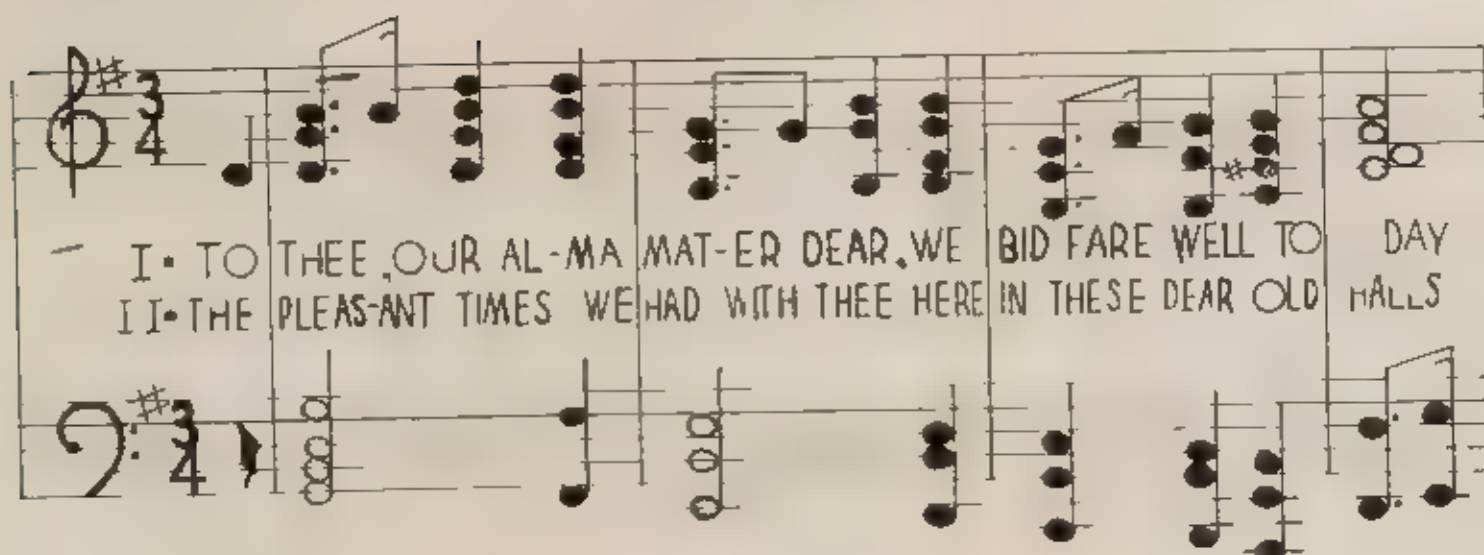 3
4
I. TO THEE, OUR AL-MA MAT-ER DEAR, WE BID FARE WELL TO DAY
II. THE PLEAS-ANT TIMES WE HAD WITH THEE HERE IN THESE DEAR OLD HALLS
3
4